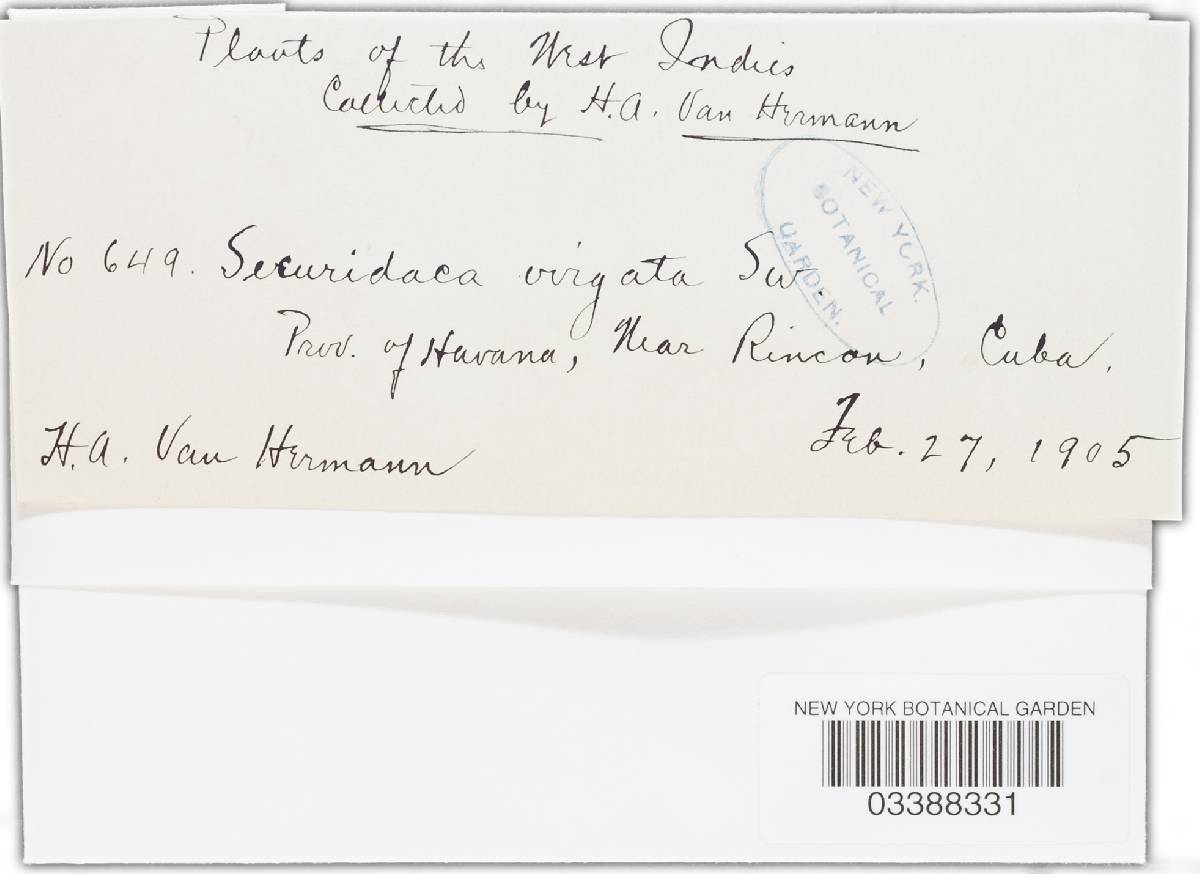 Plants of the West Indies
Collected by H.A. Van Hermann
NEW YORK.
BOTANICAL
GARDEN.
No 649. Securidaca virgata Sw.
Prov. of Havana, Near Rincon, Cuba.
H.A. Van Hermann
Feb. 27, 1905
NEW YORK BOTANICAL GARDEN
03388331